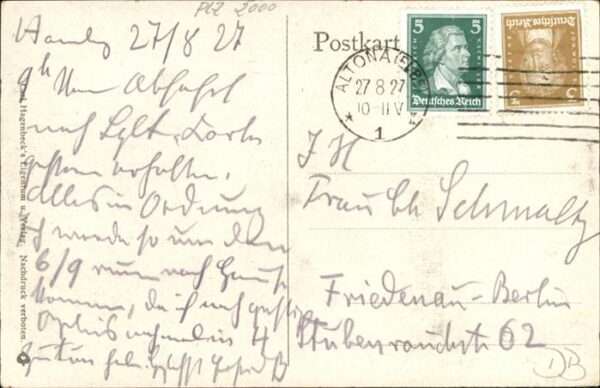 PLZ 2000
Hambg 27/8 27
9h Um Abfahrt
nach Sylt, Karte
gestern erhalten,
Alles in Ordnung
ich werde so um den
6/9 rum nach Hause
kommen, da ich noch
4
Postkarte
ALTONA (ELBE)
27 8 27
10-11 V
* 1
5 5
Deutsches Reich
3 3
Deutsches Reich
I H
Frau Ch Schmaltz
Friedenau-Berlin
Stubenrauchstr 62
DB
Carl Hagenbeck's Eigentum u. Verlag. Nachdruck verboten.